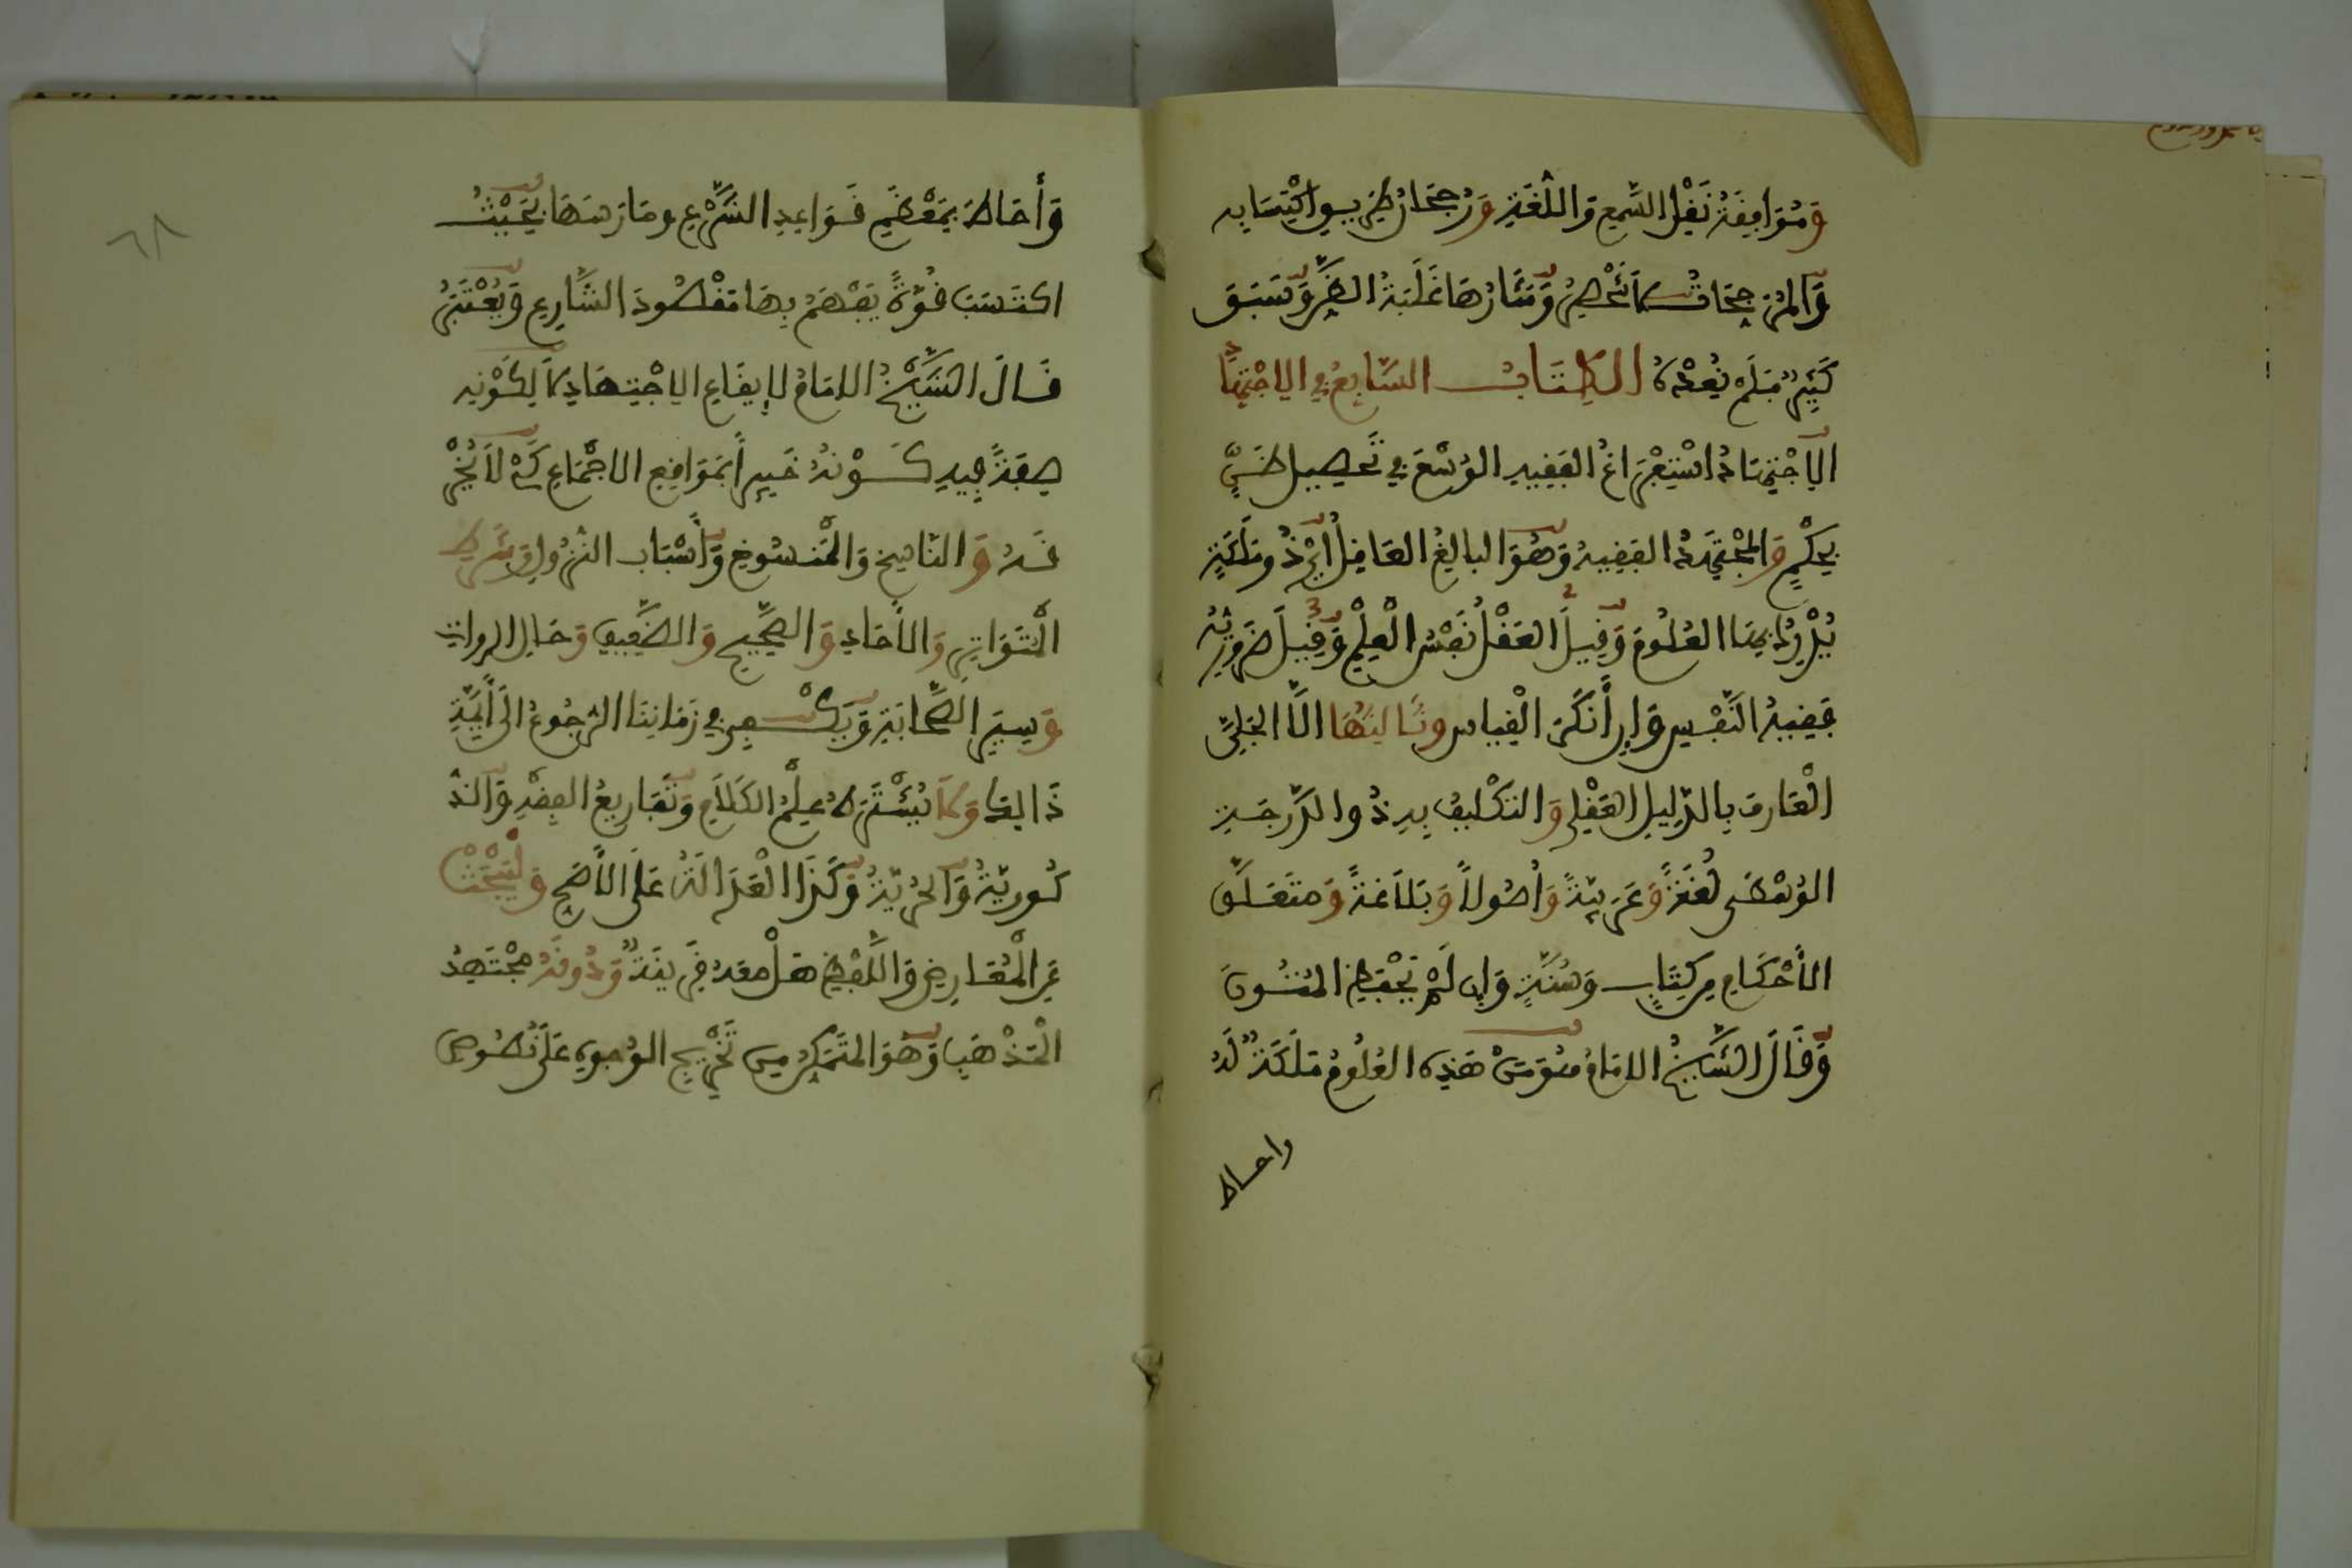 وَمُوَافِقَةُ نَقْلِ السَّمعِ وَاللُّغَةِ وَرُجْحَانُ طَرِيقِ اكْتِسَابِهِ
وَالمُرَجِّحَاتُ لَا تَنْحَصِرُ وَمَثَارُهَا غَلَبَةُ الظَّنِّ وَسَبَقَ
كَثِيرٌ فَلَمْ نُعِدْهُ الكِتَابُ السَّابِعُ فِي الاجْتِهَادِ
الاجْتِهَادُ اسْتِفْرَاغُ الفَقِيهِ الوُسْعَ فِي تَحْصِيلِ ظَنٍّ
بِحُكْمٍ وَالمُجْتَهِدُ الفَقِيهُ وَهُوَ البَالِغُ العَاقِلُ أَيْ ذُو مَلَكَةٍ
يُدْرِكُ بِهَا العُلُومَ وَقِيلَ العَقْلُ نَفْسُ الْعِلْمِ وَقِيلَ ضَرُورِيُّهُ
فَقِيهُ النَّفْسِ وَإِن أَنْكَرَ الْقِيَاسَ وَثَالِثُهَا الَّا الجَلِيَّ
الْعَارِفُ بِالدَّلِيلِ العَقْلِي وَالتَكْلِيفِ بِهِ ذُو الدَّرَجَةِ
الوُسْطَى لُغَةً وَعَرَبِيَّةً وَأُصُولاً وَبَلَاغَةً وَمتَعَلَّقِ
الأَحْكَامِ مِن كِتَابٍ وَسُنَّةٍ وَإِن لَمْ يَحْفَظِ المُتُونَ
وَقَالَ الشَّيْخُ الامَامُ هُوَ مَنْ هَذِه العُلُومُ مَلَكَةٌ لَهُ
واحاط
وَأَحَاطَ بِمُعْظَمِ قَوَاعِدِ الشَّرْعِ ومَارَسَهَا بِحَيْثُ
اكتَسَبَ قُوَّةً يَفْهَمُ بِهَا مَقْصُودَ الشَّارِعِ وَيُعْتَبَرُ
قَالَ الشَّيْخُ الامَامُ لإِيقَاعِ الاجْتِهَادِ لَا لِكَوْنِهِ
صِفَةً فِيهِ كَوْنُهُ خَبِيراً بِمَوَاقِعِ الاجْمَاعِ كَيْ لَا يَخْرِ
قَهُ وَالنَّاسِخِ وَالْمَنسُوخِ وَأَسْبَابِ النُّزُولِ وَشَرْطِ
الْمُتَوَاتِرِ وَالأَحَادِ وَالصَّحِيحِ وَالضَّعِيفِ وَحَالِ الرواتِ
وَسِيَرِ الصَّحَابَةِ وَيَكْفِي فِي زَمَانِنَا الرُّجُوعُ الَى أَيِمَّةِ
ذَالِكَ وَلَا يُشْتَرَطُ عِلْمُ الكَلَامِ وَتَفَارِيعُ الفِقْهِ وَالذُّ
كُورِيَّةُ وَالحُرِيَّةُ وَكَذَا الْعَدَالَةُ عَلَى الأَصَحِّ وَلْيَبْحَثْ
عَنِ الْمُعَارِضِ وَاللَّفْظِ هَلْ مَعَهُ قَرِينَةٌ وَدُونَهُ مُجْتَهِدُ
الْمَذْهَبِ وَهُوَ المُتَمَكِّنُ مِن تَخْرِيجِ الوُجُوهِ عَلَى نُصُوصِ
٦٨